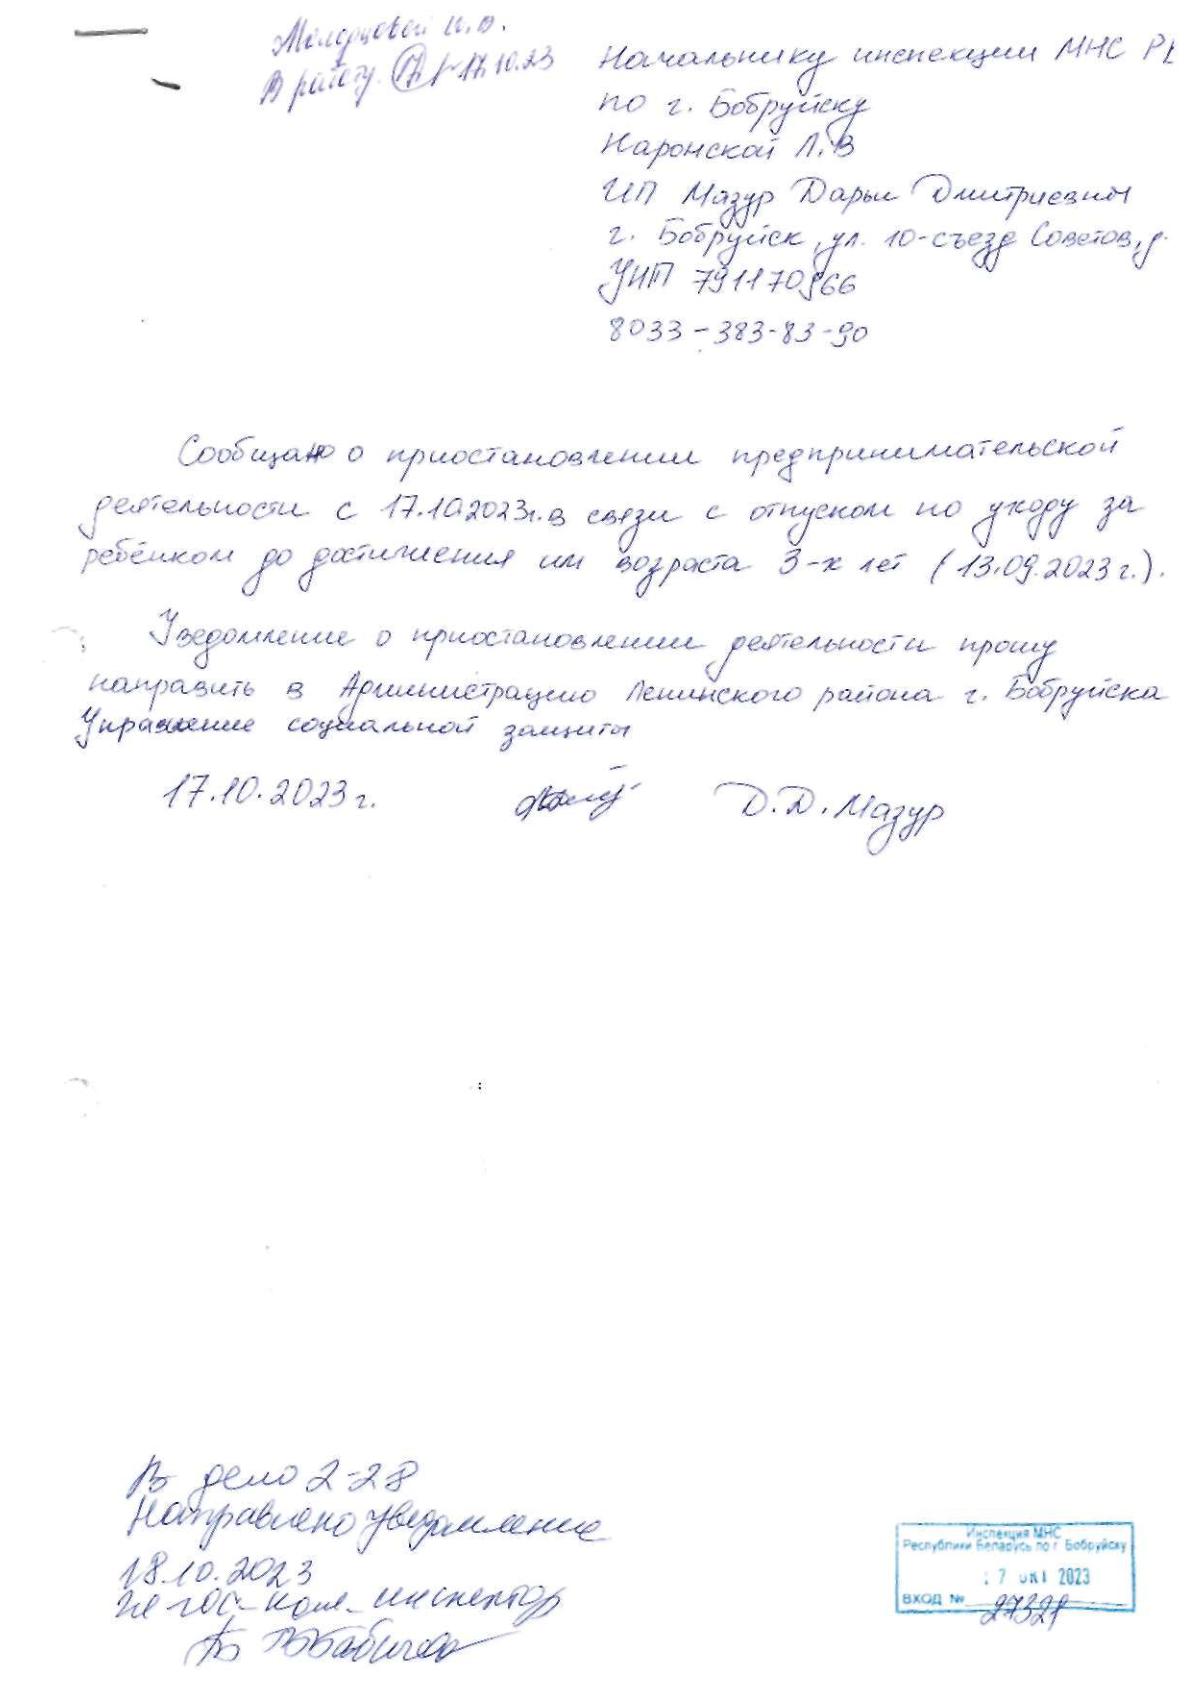 Молодцовой И.В.
В работу. 17.10.23
Начальнику инспекции МНС РБ
по г. Бобруйску
Наронской Л.В
ИП Мазур Дарьи Дмитриевны
г. Бобруйск, ул. 10-съезд Советов, д.
УНП 791170966
8033-383-83-90
Сообщаю о приостановлении предпринимательской
деятельности с 17.10.2023г. в связи с отпуском по уходу за
ребёнком до достижения им возраста 3-х лет (13.09.2023г.).
Уведомление о приостановлении деятельности прошу
направить в Администрацию Ленинского района г. Бобруйска
Управление социальной защиты
17.10.2023г.
Д.Д. Мазур
В дело 2-28
Направлено уведомление
18.10.2023
инспектор
Инспекция МНС
Республики Беларусь по г. Бобруйску
17 ОКТ 2023
ВХОД № 27321